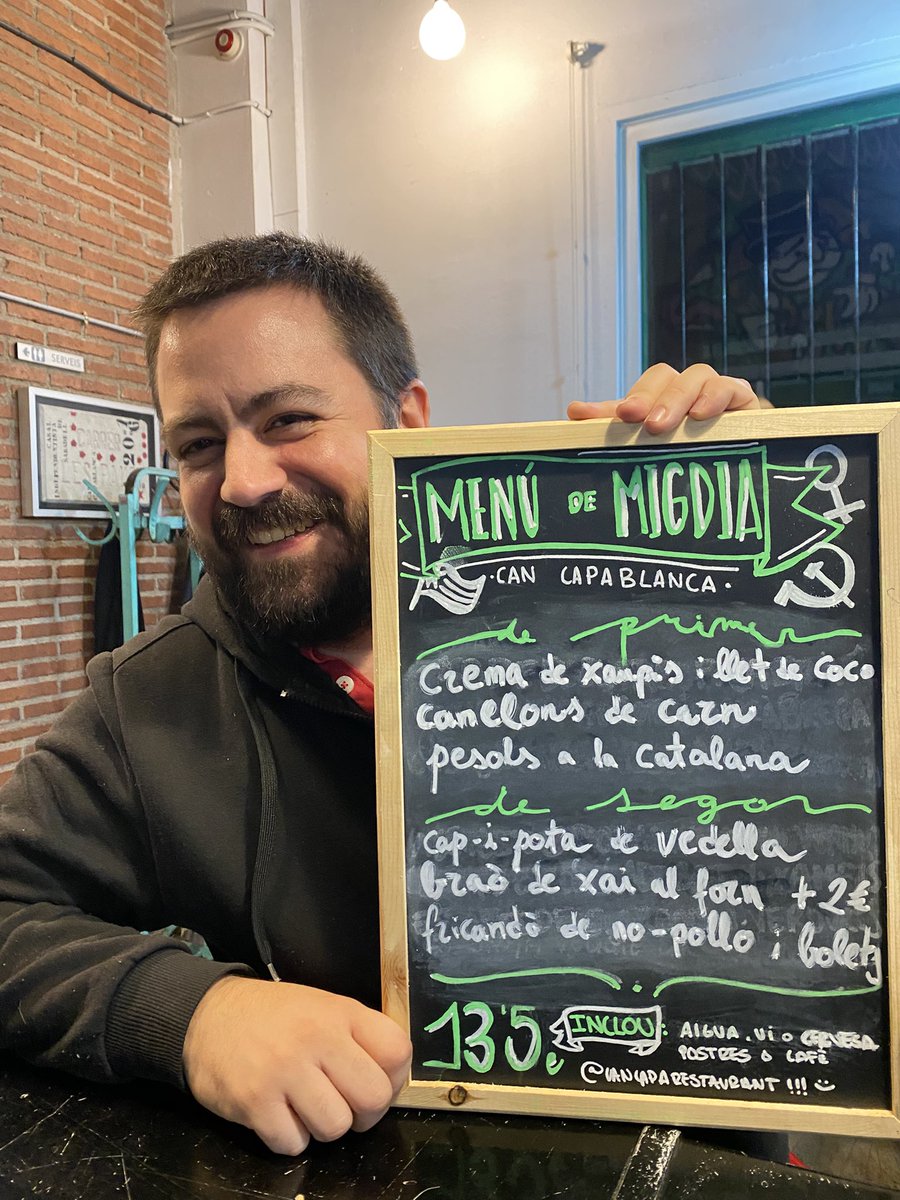 SERVEIS
CASAL
INDEPENDENTISTA
DE
SABADELL
MENÚ DE MIGDIA
·CAN CAPABLANCA·
de primer
crema de xampis i llet de coco
canelons de carn
pesols a la catalana
de segon
cap-i-pota de vedella
braó de xai al forn +2€
fricandó de no-pollo i bolets
13'5€ INCLOU: AIGUA, VI O CERVESA
POSTRES O CAFÈ
@CANCAPARESTAURANT !!!